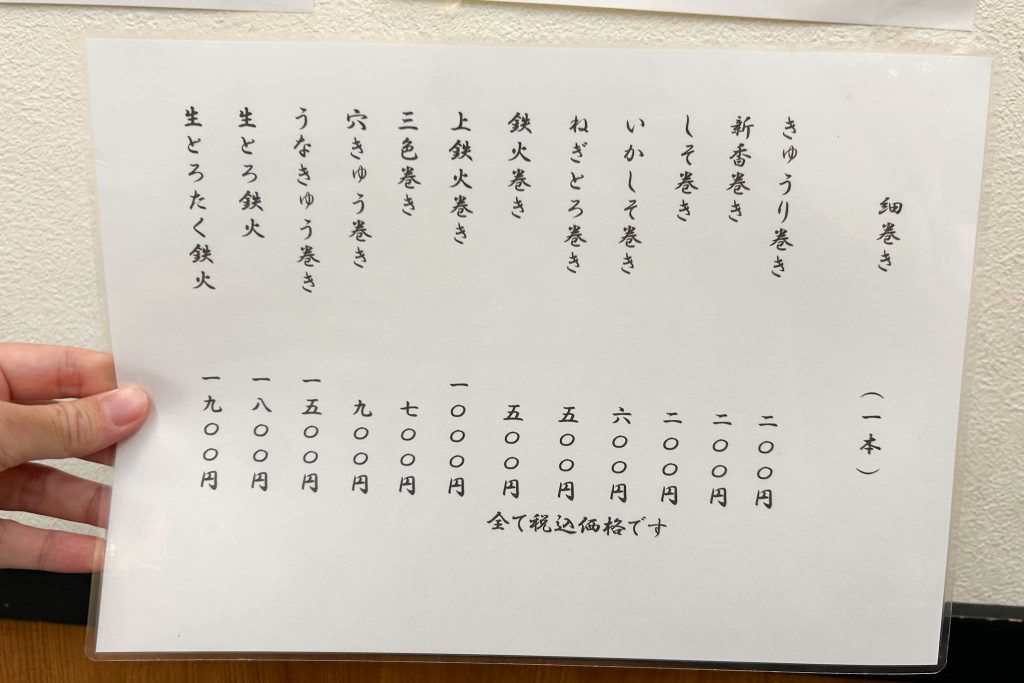 細巻き （一本）
きゅうり巻き 二〇〇円
新香巻き 二〇〇円
しそ巻き 二〇〇円
いかしそ巻き 六〇〇円
ねぎとろ巻き 五〇〇円
鉄火巻き 五〇〇円
上鉄火巻き 一〇〇〇円
三色巻き 七〇〇円
穴きゅう巻き 九〇〇円
うなきゅう巻き 一五〇〇円
生とろ鉄火 一八〇〇円
生とろたく鉄火 一九〇〇円
全て税込価格です